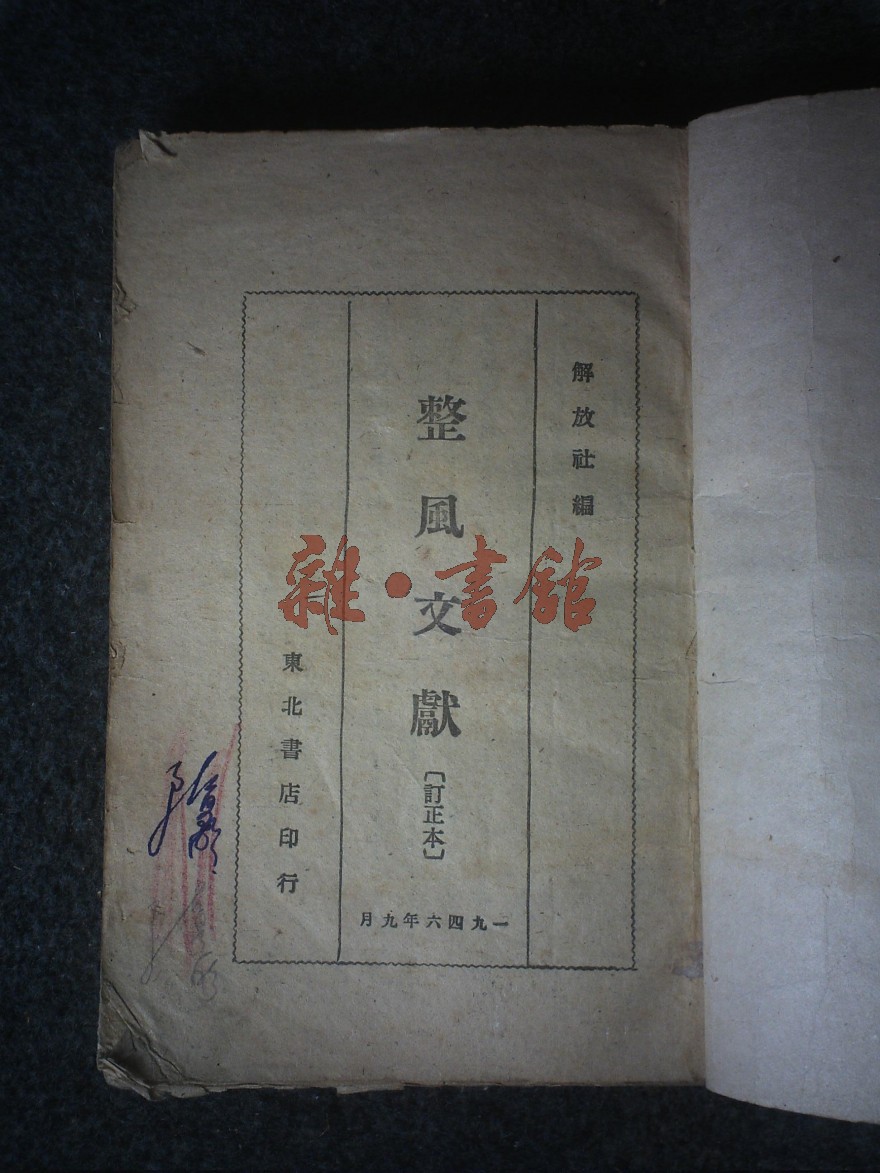 解放社編
整風文獻
〔訂正本〕
一九四六年九月
東北書店印行
雜·書館